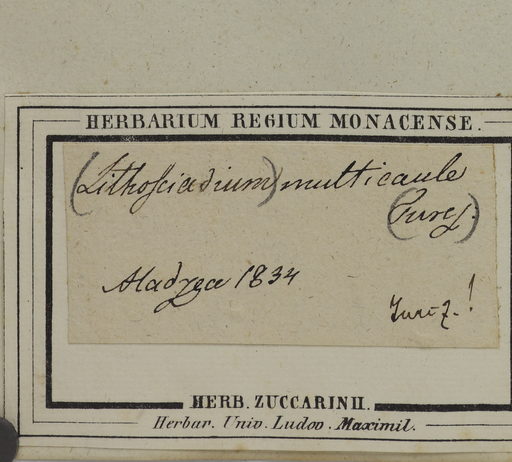 HERBARIUM REGIUM MONACENSE.
(Lithosciadium) multicaule
(Turcz.)
Turcz.!
HERB. ZUCCARINII.
Herbar. Univ. Ludov. Maximil.
1834